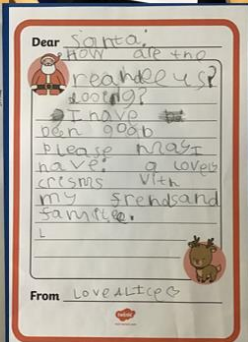 Dear santa.
How are the
reandeeus?
dooing?
I have
ben goob
please may I
have: a lovely
crisms with
my frends and
familee.
L
From LOVE ALICE
twinkl